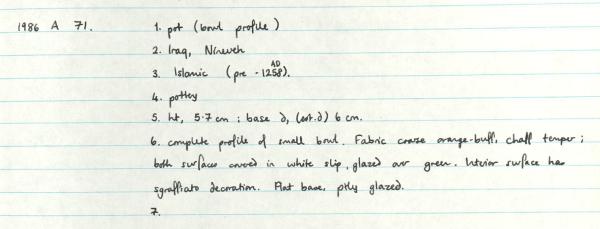 1986 A 71. 1. pot (bowl profile)
2. Iraq, Nineveh
3. Islamic (pre-1258 AD).
4. pottery
5. ht, 5.7 cm ; base d, (est.d) 6 cm.
6. complete profile of small bowl. Fabric coarse orange-buff, chaff temper ;
both surfaces covered in white slip, glazed over green. Interior surface has
sgraffiato decoration. Flat base, ptly glazed.
7.